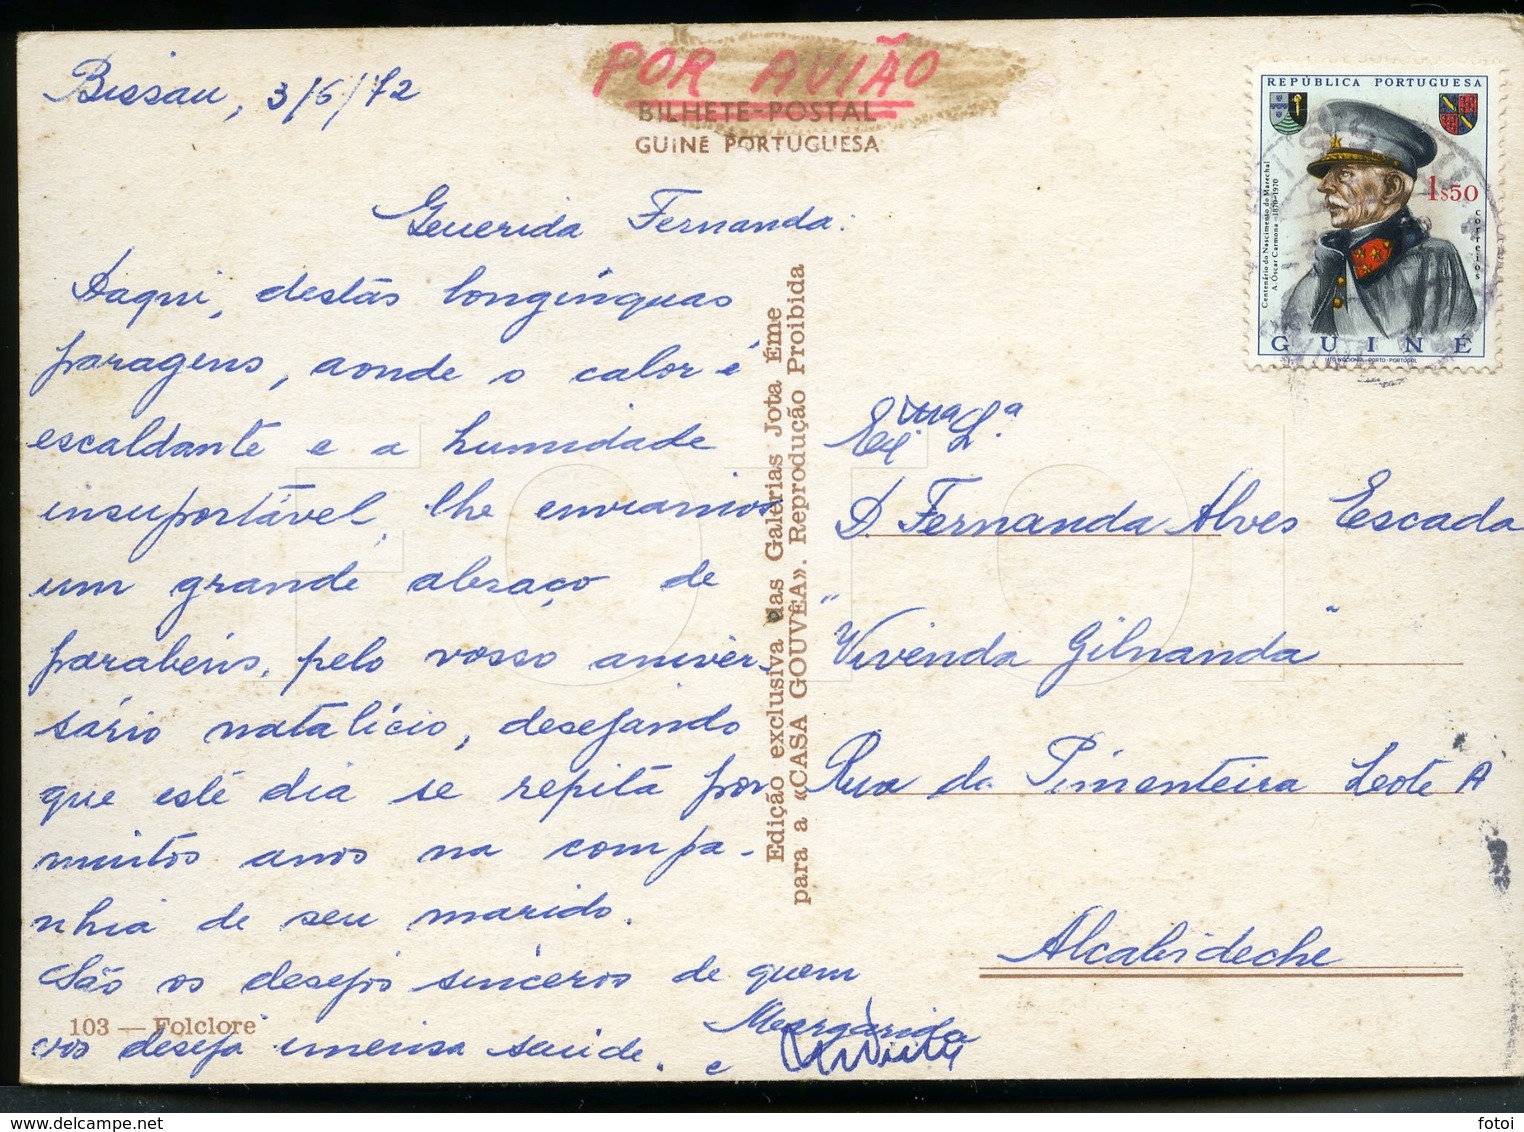 Bissau, 3/6/72
POR AVIÃO
BILHETE-POSTAL
GUINÉ PORTUGUESA
REPÚBLICA PORTUGUESA
1$50
CORREIOS
Centenário do Nascimento do Marechal
A. Óscar Carmona-1870-1970
GUINÉ
Querida Fernanda:
Daqui, destas longínquas
paragens, aonde o calor é
escaldante e a humidade
insuportável, lhe enviamos
um grande abraço de
parabéns, pelo vosso aniver-
sário natalício, desejando
que este dia se repita por
muitos anos na compa-
nhia de seu marido.
São os desejos sinceros de quem
vos deseja imensa saúde.
Margarida
e
103 — Folclore
Edição exclusiva das Galerias Jota Éme
para a «CASA GOUVÊA». Reprodução Proibida
Exma Sr.ª
D. Fernanda Alves Escada
"Vivenda Gilnanda"
Rua da Pimenteira Lote A
Alcabideche
FOTOI
fotoi